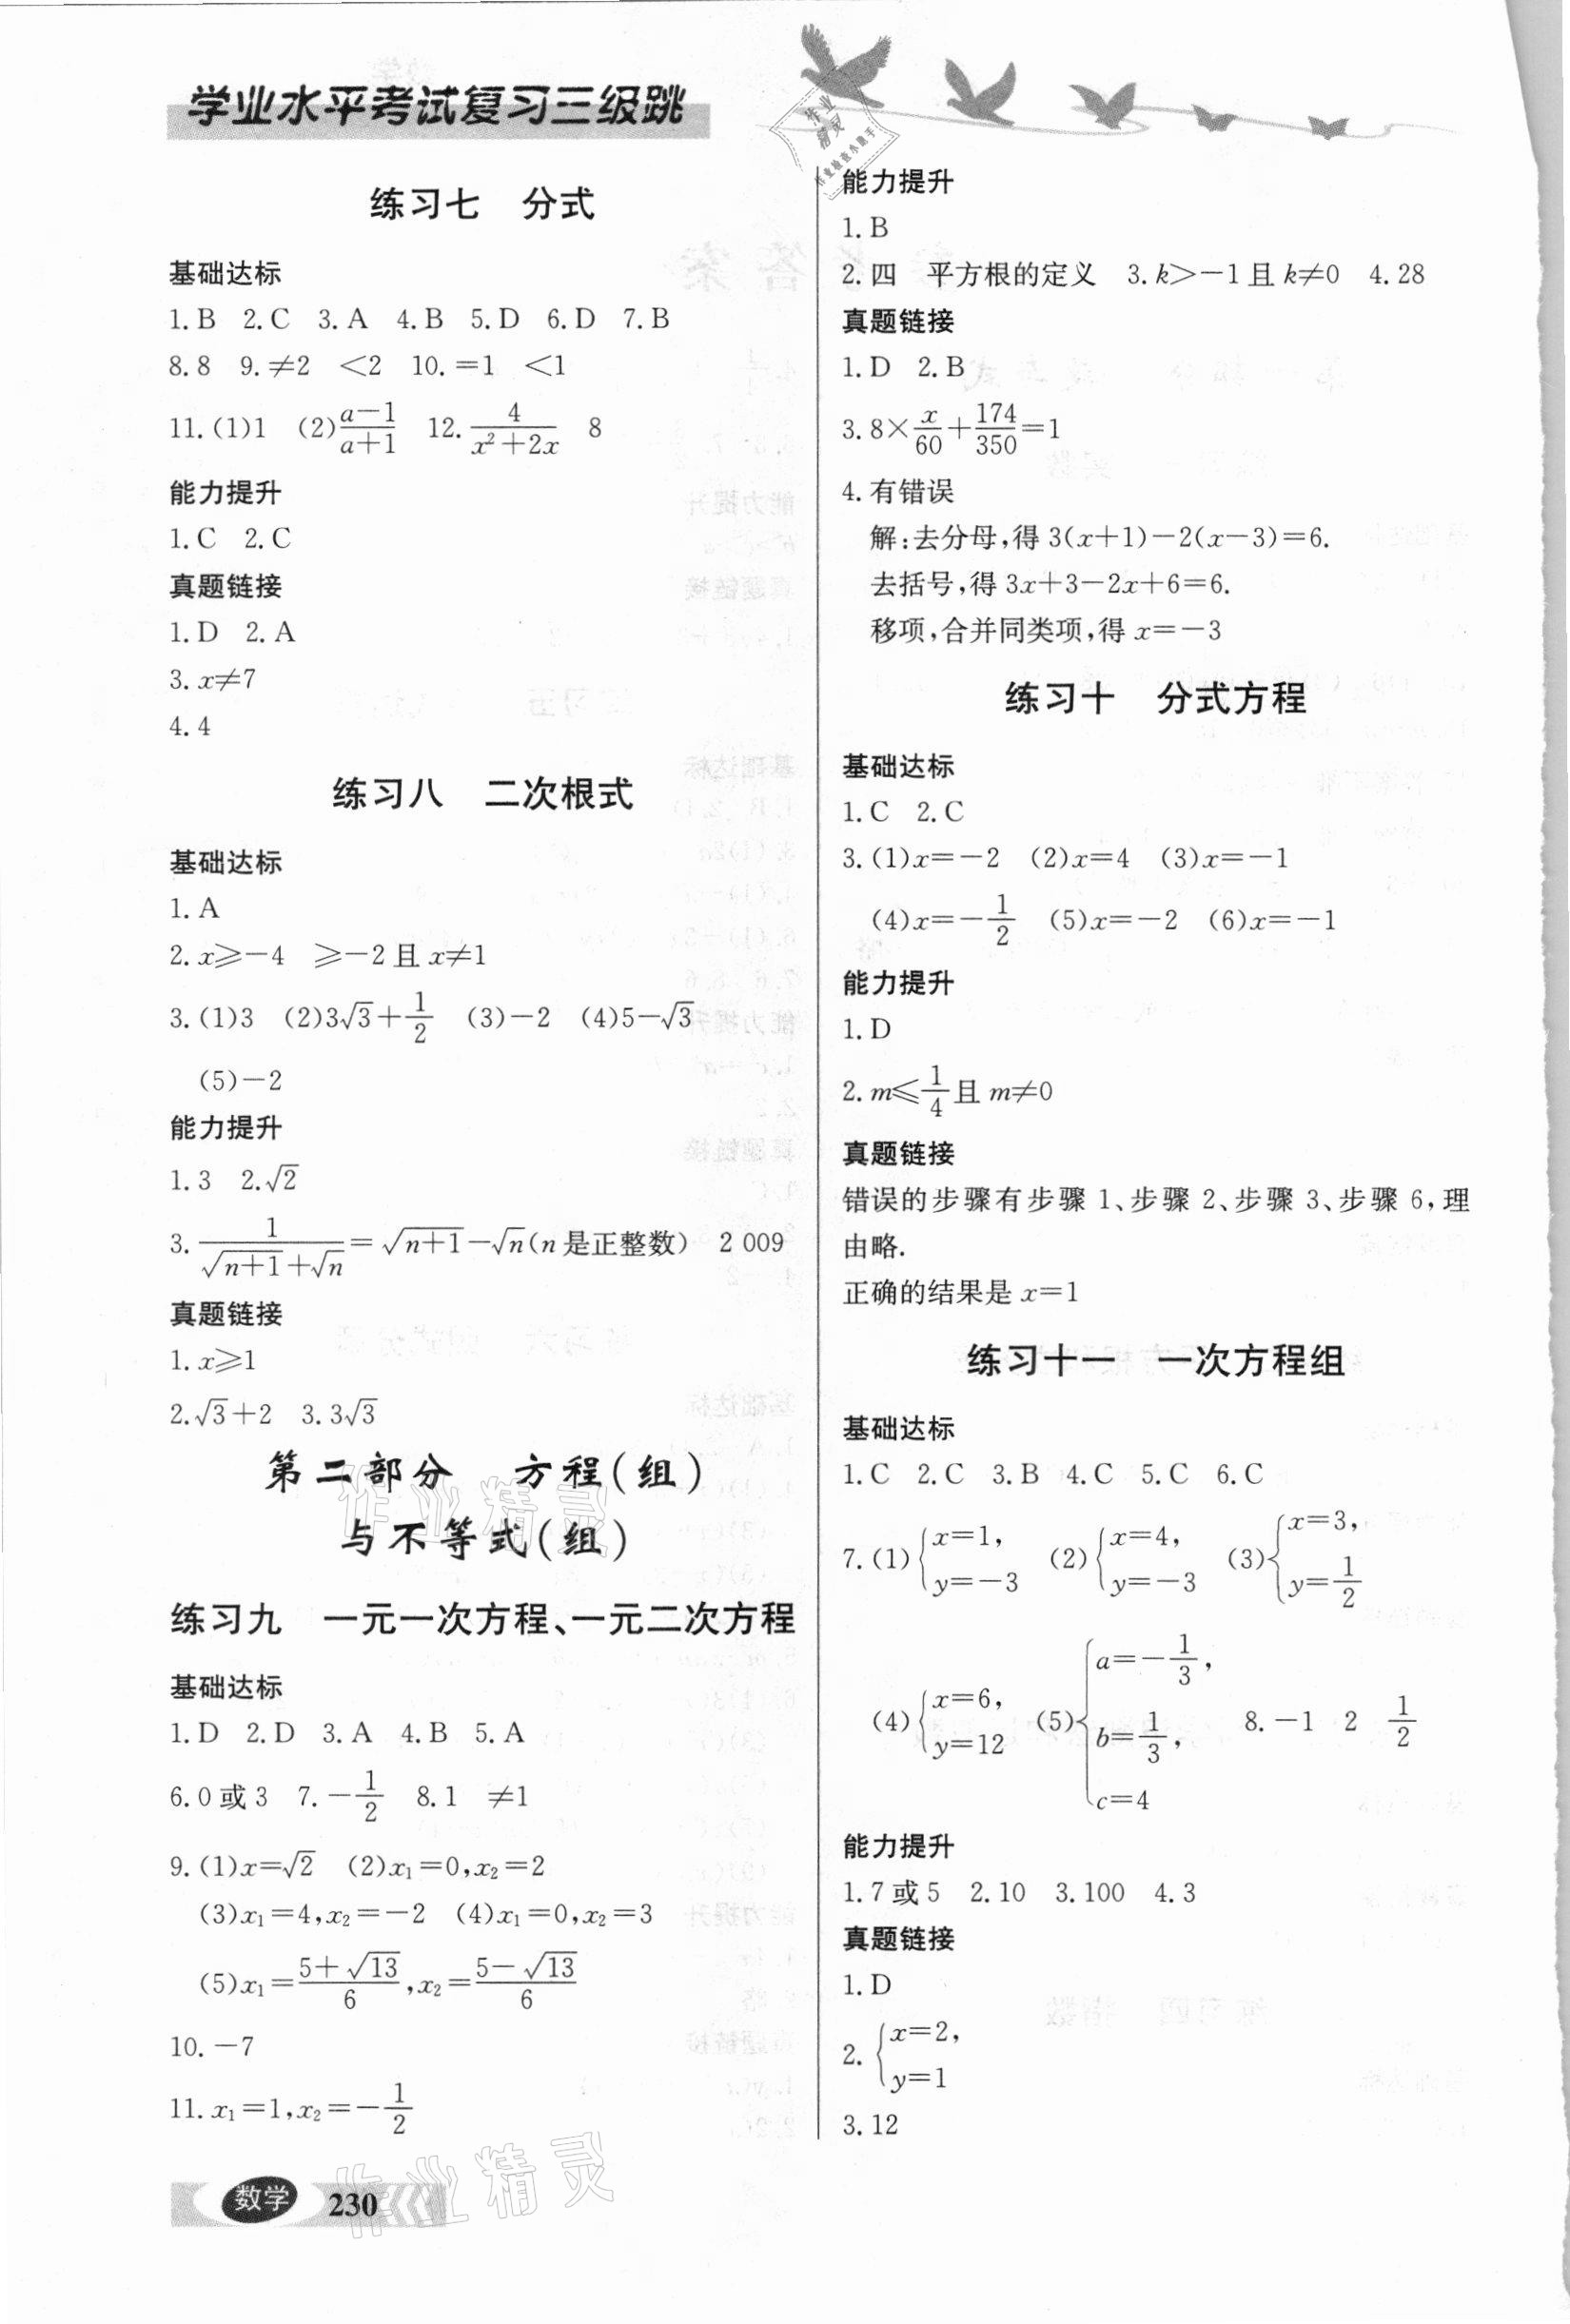 学业水平考试复习三级跳
练习七　分式
基础达标
1.B　2.C　3.A　4.B　5.D　6.D　7.B
8.8　9.≠2　<2　10.=1　<1
11.(1)1　(2)\frac{a-1}{a+1}　12.\frac{4}{x²+2x}　8
能力提升
1.C　2.C
真题链接
1.D　2.A
3.x≠7
4.4
练习八　二次根式
基础达标
1.A
2.x⩾-4　⩾-2且x≠1
3.(1)3　(2)3√3+\frac{1}{2}　(3)-2　(4)5-√3
(5)-2
能力提升
1.3　2.√2
3.\frac{1}{\sqrt{n+1}+\sqrt{n}}=\sqrt{n+1}-\sqrt{n}(n是正整数)　2 009
真题链接
1.x⩾1
2.√3+2　3.3√3
第二部分　方程(组)
与不等式(组)
练习九　一元一次方程、一元二次方程
基础达标
1.D　2.D　3.A　4.B　5.A
6.0或3　7.-\frac{1}{2}　8.1　≠1
9.(1)x=√2　(2)x₁=0,x₂=2
(3)x₁=4,x₂=-2　(4)x₁=0,x₂=3
(5)x₁=\frac{5+\sqrt{13}}{6},x₂=\frac{5-\sqrt{13}}{6}
10.-7
11.x₁=1,x₂=-\frac{1}{2}
能力提升
1.B
2.四　平方根的定义　3.k>-1且k≠0　4.28
真题链接
1.D　2.B
3.8×\frac{x}{60}+\frac{174}{350}=1
4.有错误
解:去分母,得3(x+1)-2(x-3)=6.
去括号,得3x+3-2x+6=6.
移项,合并同类项,得x=-3
练习十　分式方程
基础达标
1.C　2.C
3.(1)x=-2　(2)x=4　(3)x=-1
(4)x=-\frac{1}{2}　(5)x=-2　(6)x=-1
能力提升
1.D
2.m⩽\frac{1}{4}且m≠0
真题链接
错误的步骤有步骤1、步骤2、步骤3、步骤6,理
由略.
正确的结果是x=1
练习十一　一次方程组
基础达标
1.C　2.C　3.B　4.C　5.C　6.C
7.(1){x=1, y=-3　(2){x=4, y=-3　(3){x=3, y=\frac{1}{2}
(4){x=6, y=12　(5){a=-\frac{1}{3}, b=\frac{1}{3}, c=4　8.-1　2　\frac{1}{2}
能力提升
1.7或5　2.10　3.100　4.3
真题链接
1.D
2.{x=2, y=1
3.12
数学　230
作业精灵
作业精灵